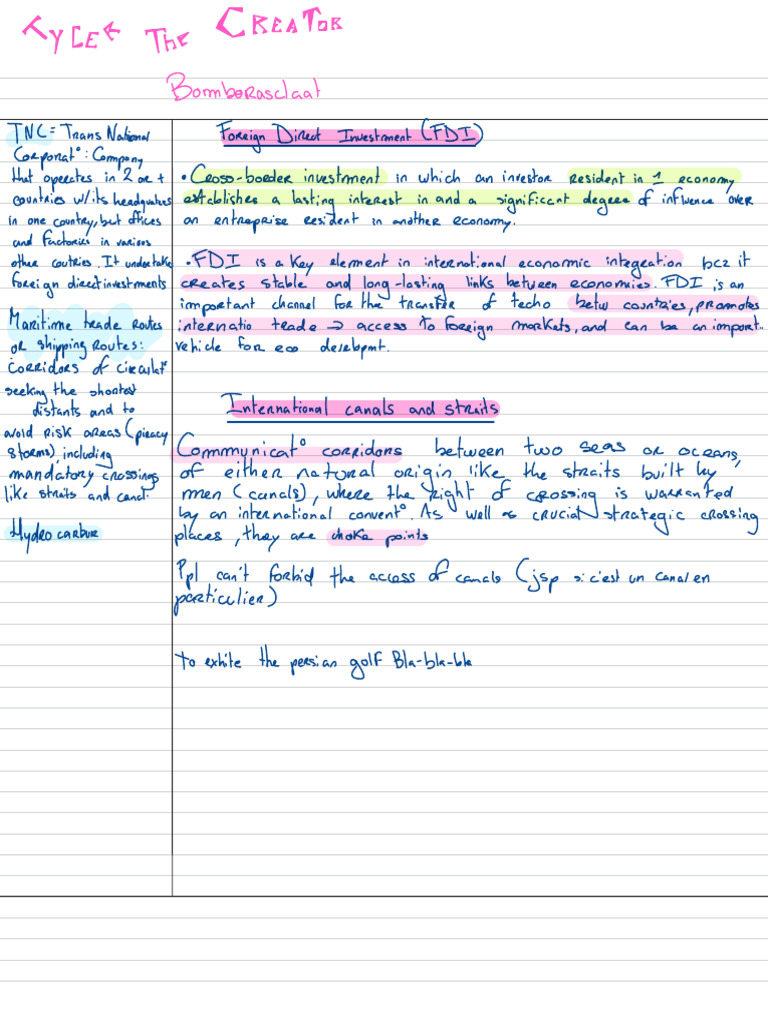 Tyler The Creator
Bomborasclaat
TNC = Trans National
Corporat°: Company
that operates in 2 or +
countries w/its headquaters
in one country, but offices
and factories in various
other coutries. It undertake
foreign direct investments
Maritime trade Routes
or shipping routes:
corridors of circulat°
seeking the shortest
distants and to
avoid risk areas (piracy
storms), including
mandatory crossings
like straits and canal.
Hydrocarbure
Foreign Direct Investment (FDI)
• Cross-border investment in which an investor resident in 1 economy
establishes a lasting interest in and a significant degree of influence over
an entreprise resident in another economy.
• FDI is a key element in international economic integration bcz it
creates stable and long-lasting links between economies. FDI is an
important channel for the transfer of techo betw countries, promotes
internatio trade → access to foreign markets, and can be an import..
vehicle for eco developmt.
International canals and straits
Communicat° corridors between two seas or oceans,
of either natural origin like the straits built by
men (canals), where the right of crossing is warranted
by an international convent°. As well as crucial strategic crossing
places, they are choke points
Ppl can't forbid the access of canals (jsp si c'est un canal en
particulier)
to exhite the persian golf Bla-bla-bla